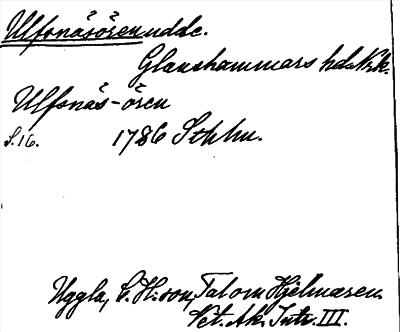 Ulfonäsörenudde.
Glanshammars hd. Nrk.
Ulfonäs-ören
S. 16. 1786 Sthlm.
Uggla, C. H:son, Tal om Hjelmaren.
Vet. Ak. Intr. III.